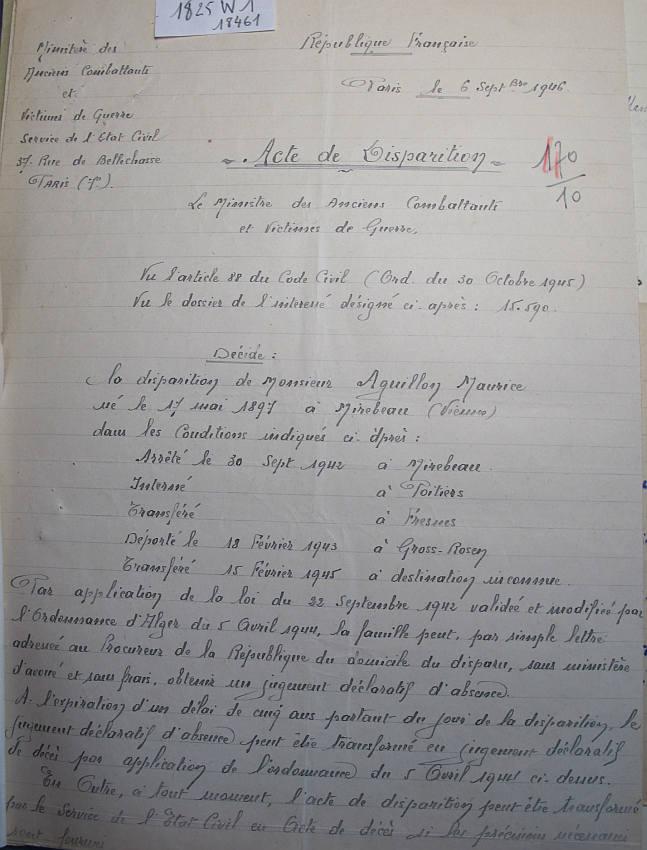 1825 W1
18461
Ministère des
Anciens Combattants
et
Victimes de Guerre
Service de l'Etat Civil
37. Rue de Bellechasse
PARIS (7e).
République Française
Paris le 6 Septbre 1946.
Acte de Disparition
170
10
Le Ministre des Anciens Combattants
et Victimes de Guerre,
Vu l'article 88 du Code Civil (Ord. du 30 Octobre 1945)
Vu le dossier de l'interessé désigné ci-après : 15.590.
Décide :
la disparition de Monsieur Aguillon Maurice
né le 17 mai 1897 à Mirebeau (Vienne)
dans les Conditions indiqués ci-après :
Arrêté le 30 Sept 1942 à Mirebeau.
Interné à Poitiers
Transféré à Fresnes
Déporté le 18 Février 1943 à Gross-Rosen
Transféré 15 Février 1945 à destination inconnue.
Par application de la loi du 22 Septembre 1942 validée et modifiée par
l'Ordonnance d'Alger du 5 Avril 1944, la famille peut, par simple lettre
adressée au Procureur de la République du domicile du disparu, sans ministère
d'avoué et sans frais, obtenir un jugement déclaratif d'absence.
A l'expiration d'un délai de cinq ans partant du jour de la disparition, le
jugement déclaratif d'absence peut être transformé en jugement déclaratif
de décès par application de l'ordonnance du 5 Avril 1944 ci-dessus.
En Outre, à tout moment, l'acte de disparition peut être transformé
par le Service de l'Etat Civil en Acte de décès si les précisions nécessaires
sont fournies